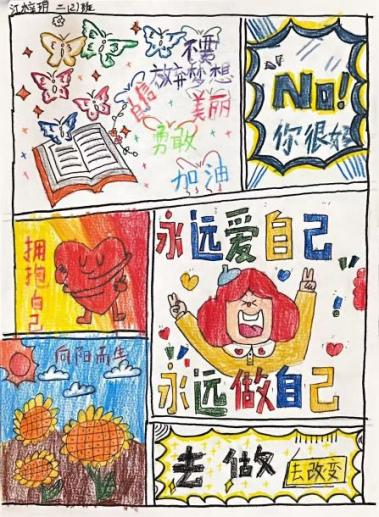 江水玥 二(2)班
不要
放弃梦想
自信
美丽
勇敢
加油
No!
你很好
拥抱自己
永远爱自己
永远做自己
向阳而生
去做
去改变